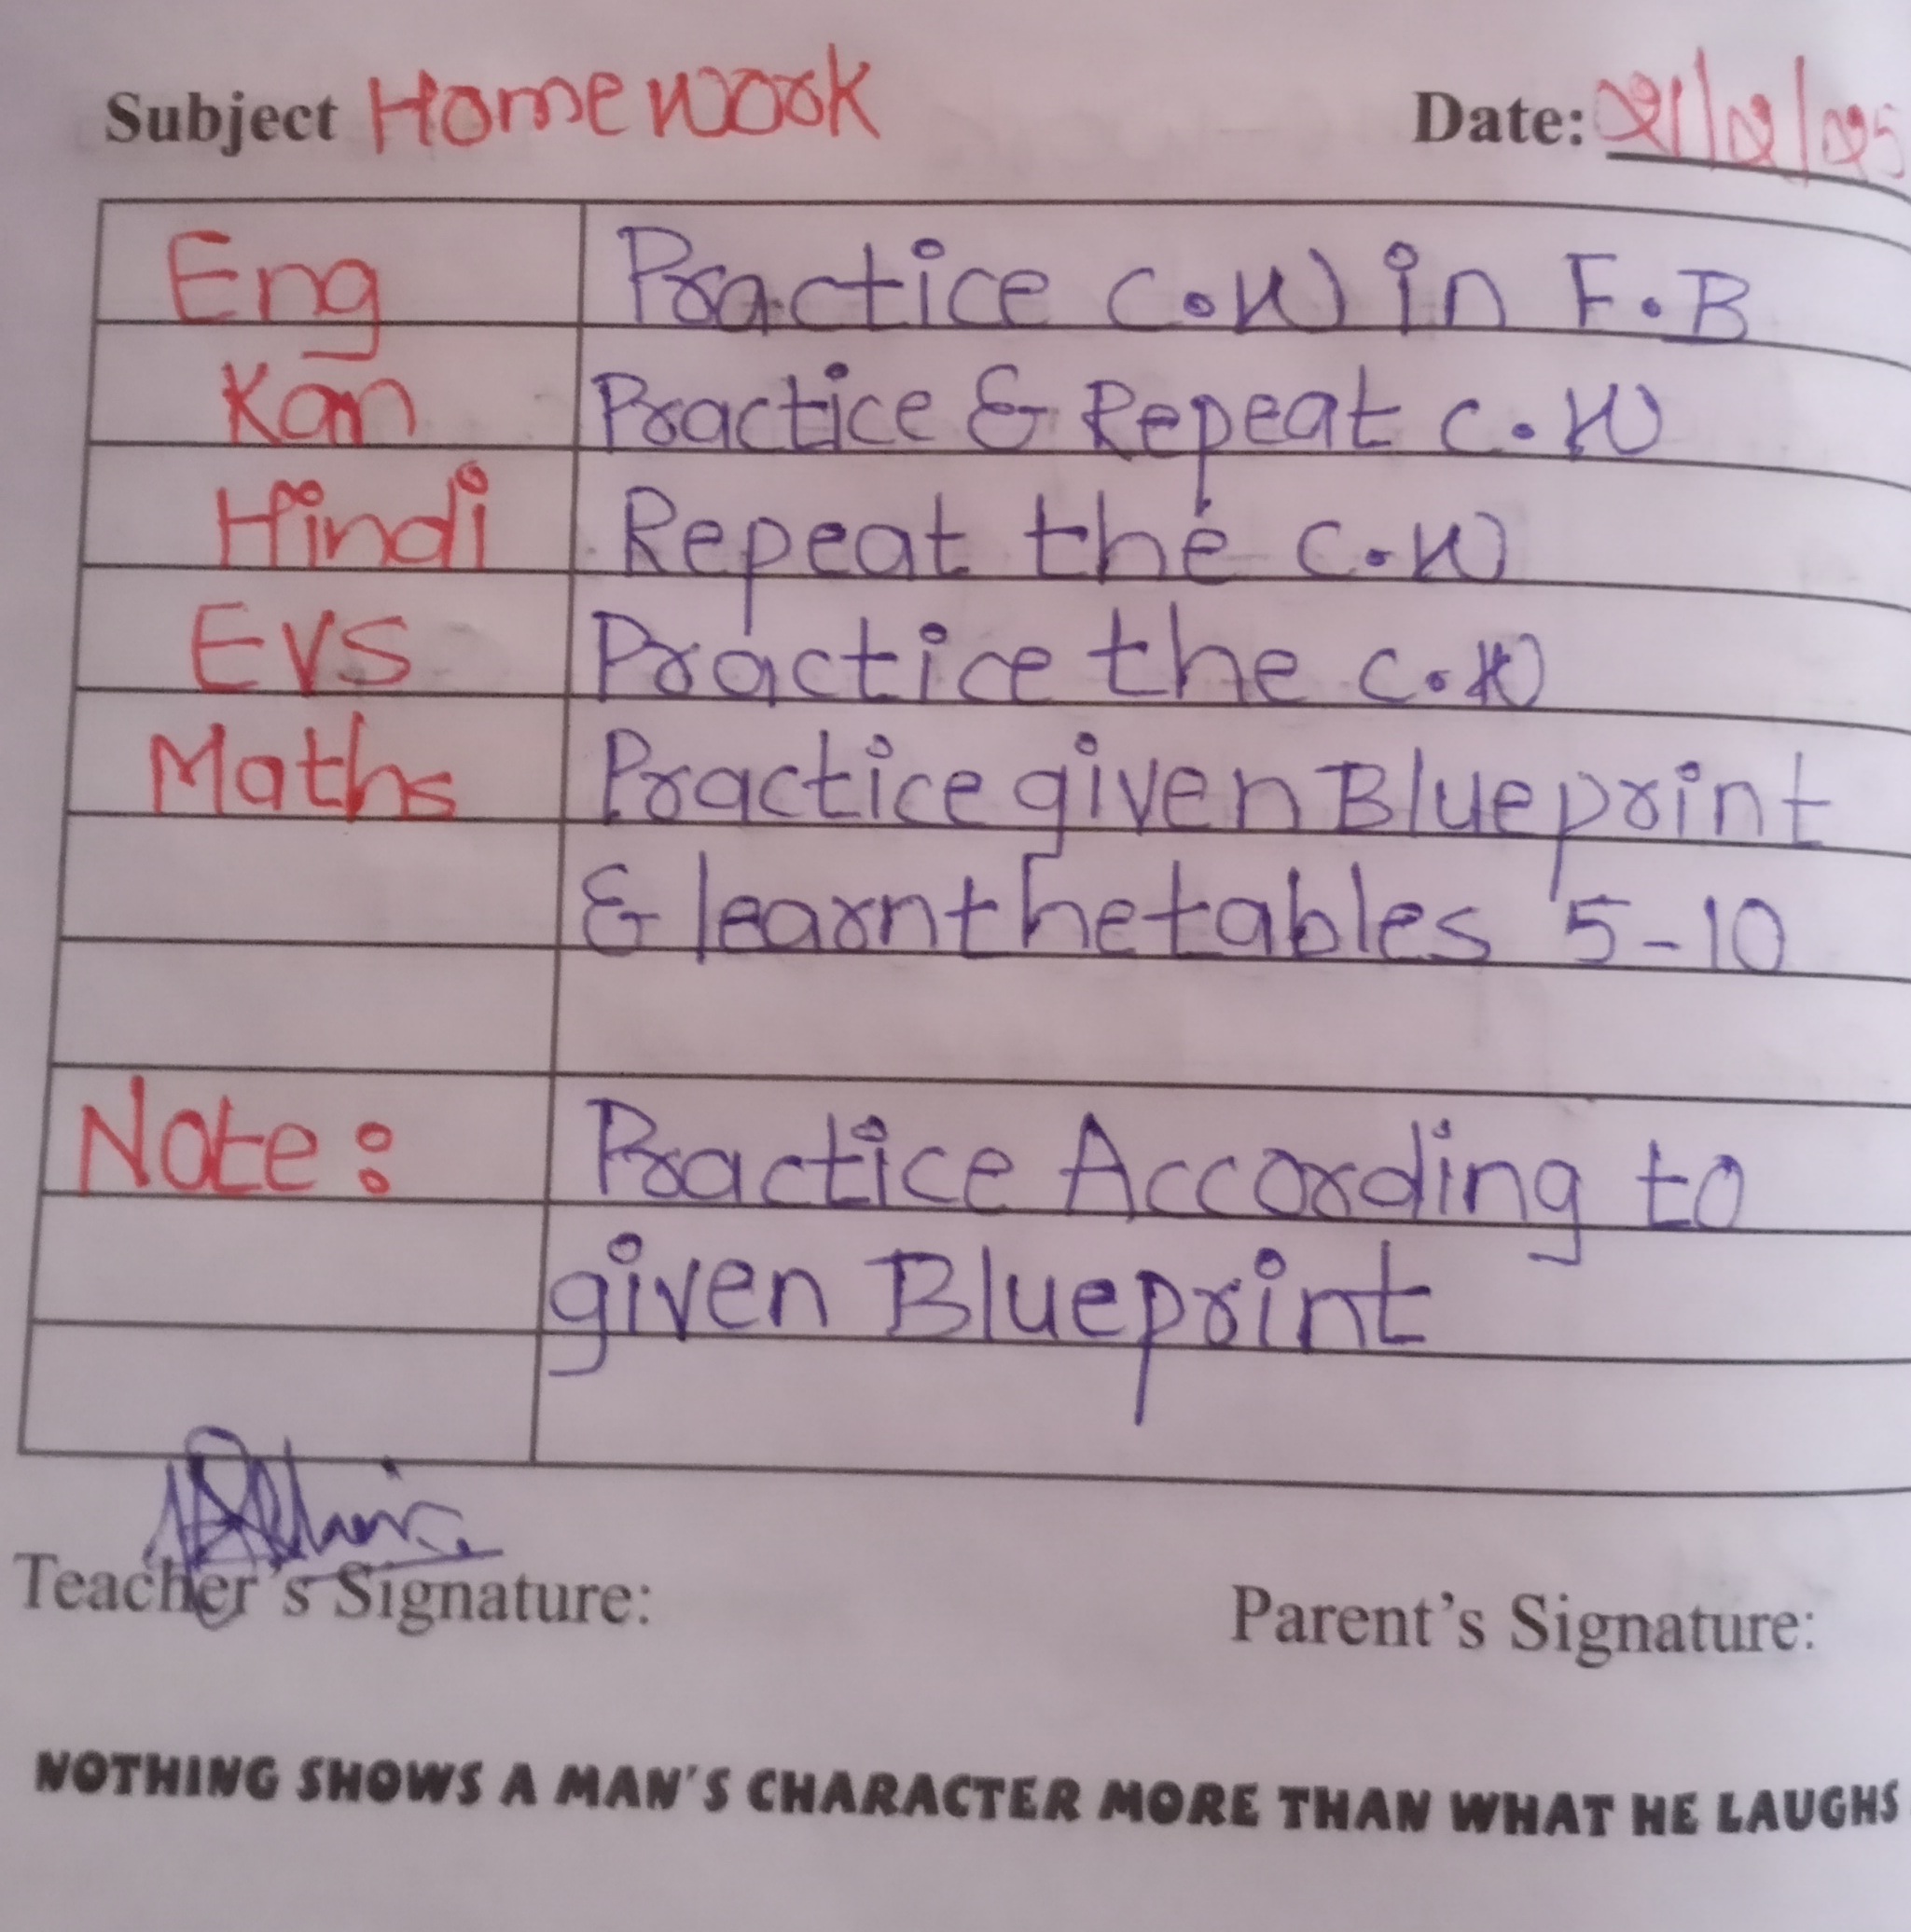 Subject Homework Date: 21/2/25
Eng Practice C.W in F.B
Kan Practice & Repeat C.W
Hindi Repeat the C.W
EVS Practice the C.W
Maths Practice given Blueprint
& learn the tables 5-10
Note: Practice According to
given Blueprint
Teacher's Signature: Parent's Signature:
NOTHING SHOWS A MAN'S CHARACTER MORE THAN WHAT HE LAUGHS